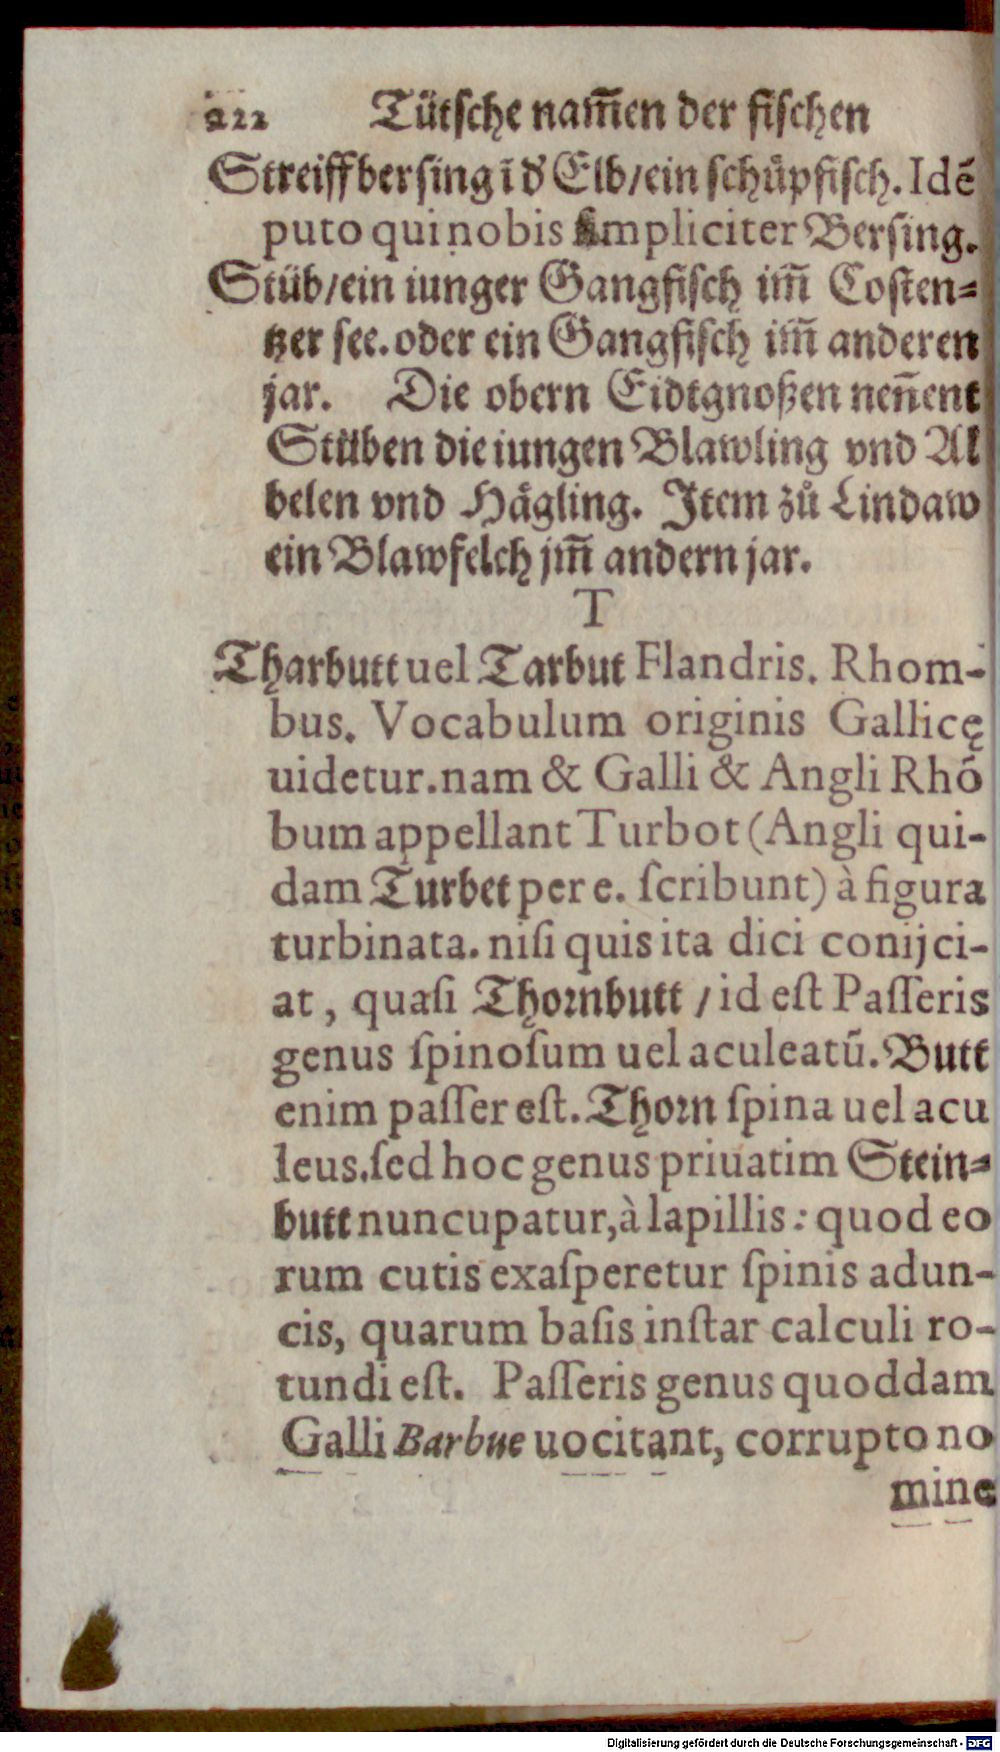 222 Tütsche nam̃en der fischen
Streiffbersing ĩ d' Elb/ein schüpfisch. Idẽ
puto qui nobis simpliciter Bersing.
Stüb/ein iunger Gangfisch im̃ Costen⸗
tzer see. oder ein Gangfisch im̃ anderen
jar. Die obern Eidtgnoßen neñent
Stüben die iungen Blawling vnd Al
belen vnd Hägling. Item zů Lindaw
ein Blawfelch jm̃ andern jar.
T
Tharbutt uel Tarbut Flandris. Rhom-
bus. Vocabulum originis Gallicę
uidetur. nam & Galli & Angli Rhõ
bum appellant Turbot (Angli qui-
dam Turbet per e. ſcribunt) à figura
turbinata. niſi quis ita dici conijci-
at, quaſi Thornbutt / id eſt Paſſeris
genus ſpinoſum uel aculeatũ. Butt
enim paſſer eſt. Thorn ſpina uel acu
leus. ſed hoc genus priuatim Stein⸗
butt nuncupatur, à lapillis: quod eo
rum cutis exaſperetur ſpinis adun-
cis, quarum baſis inſtar calculi ro-
tundi eſt. Paſſeris genus quoddam
Galli Barbue uocitant, corrupto no
mine
Digitalisierung gefördert durch die Deutsche Forschungsgemeinschaft - DFG